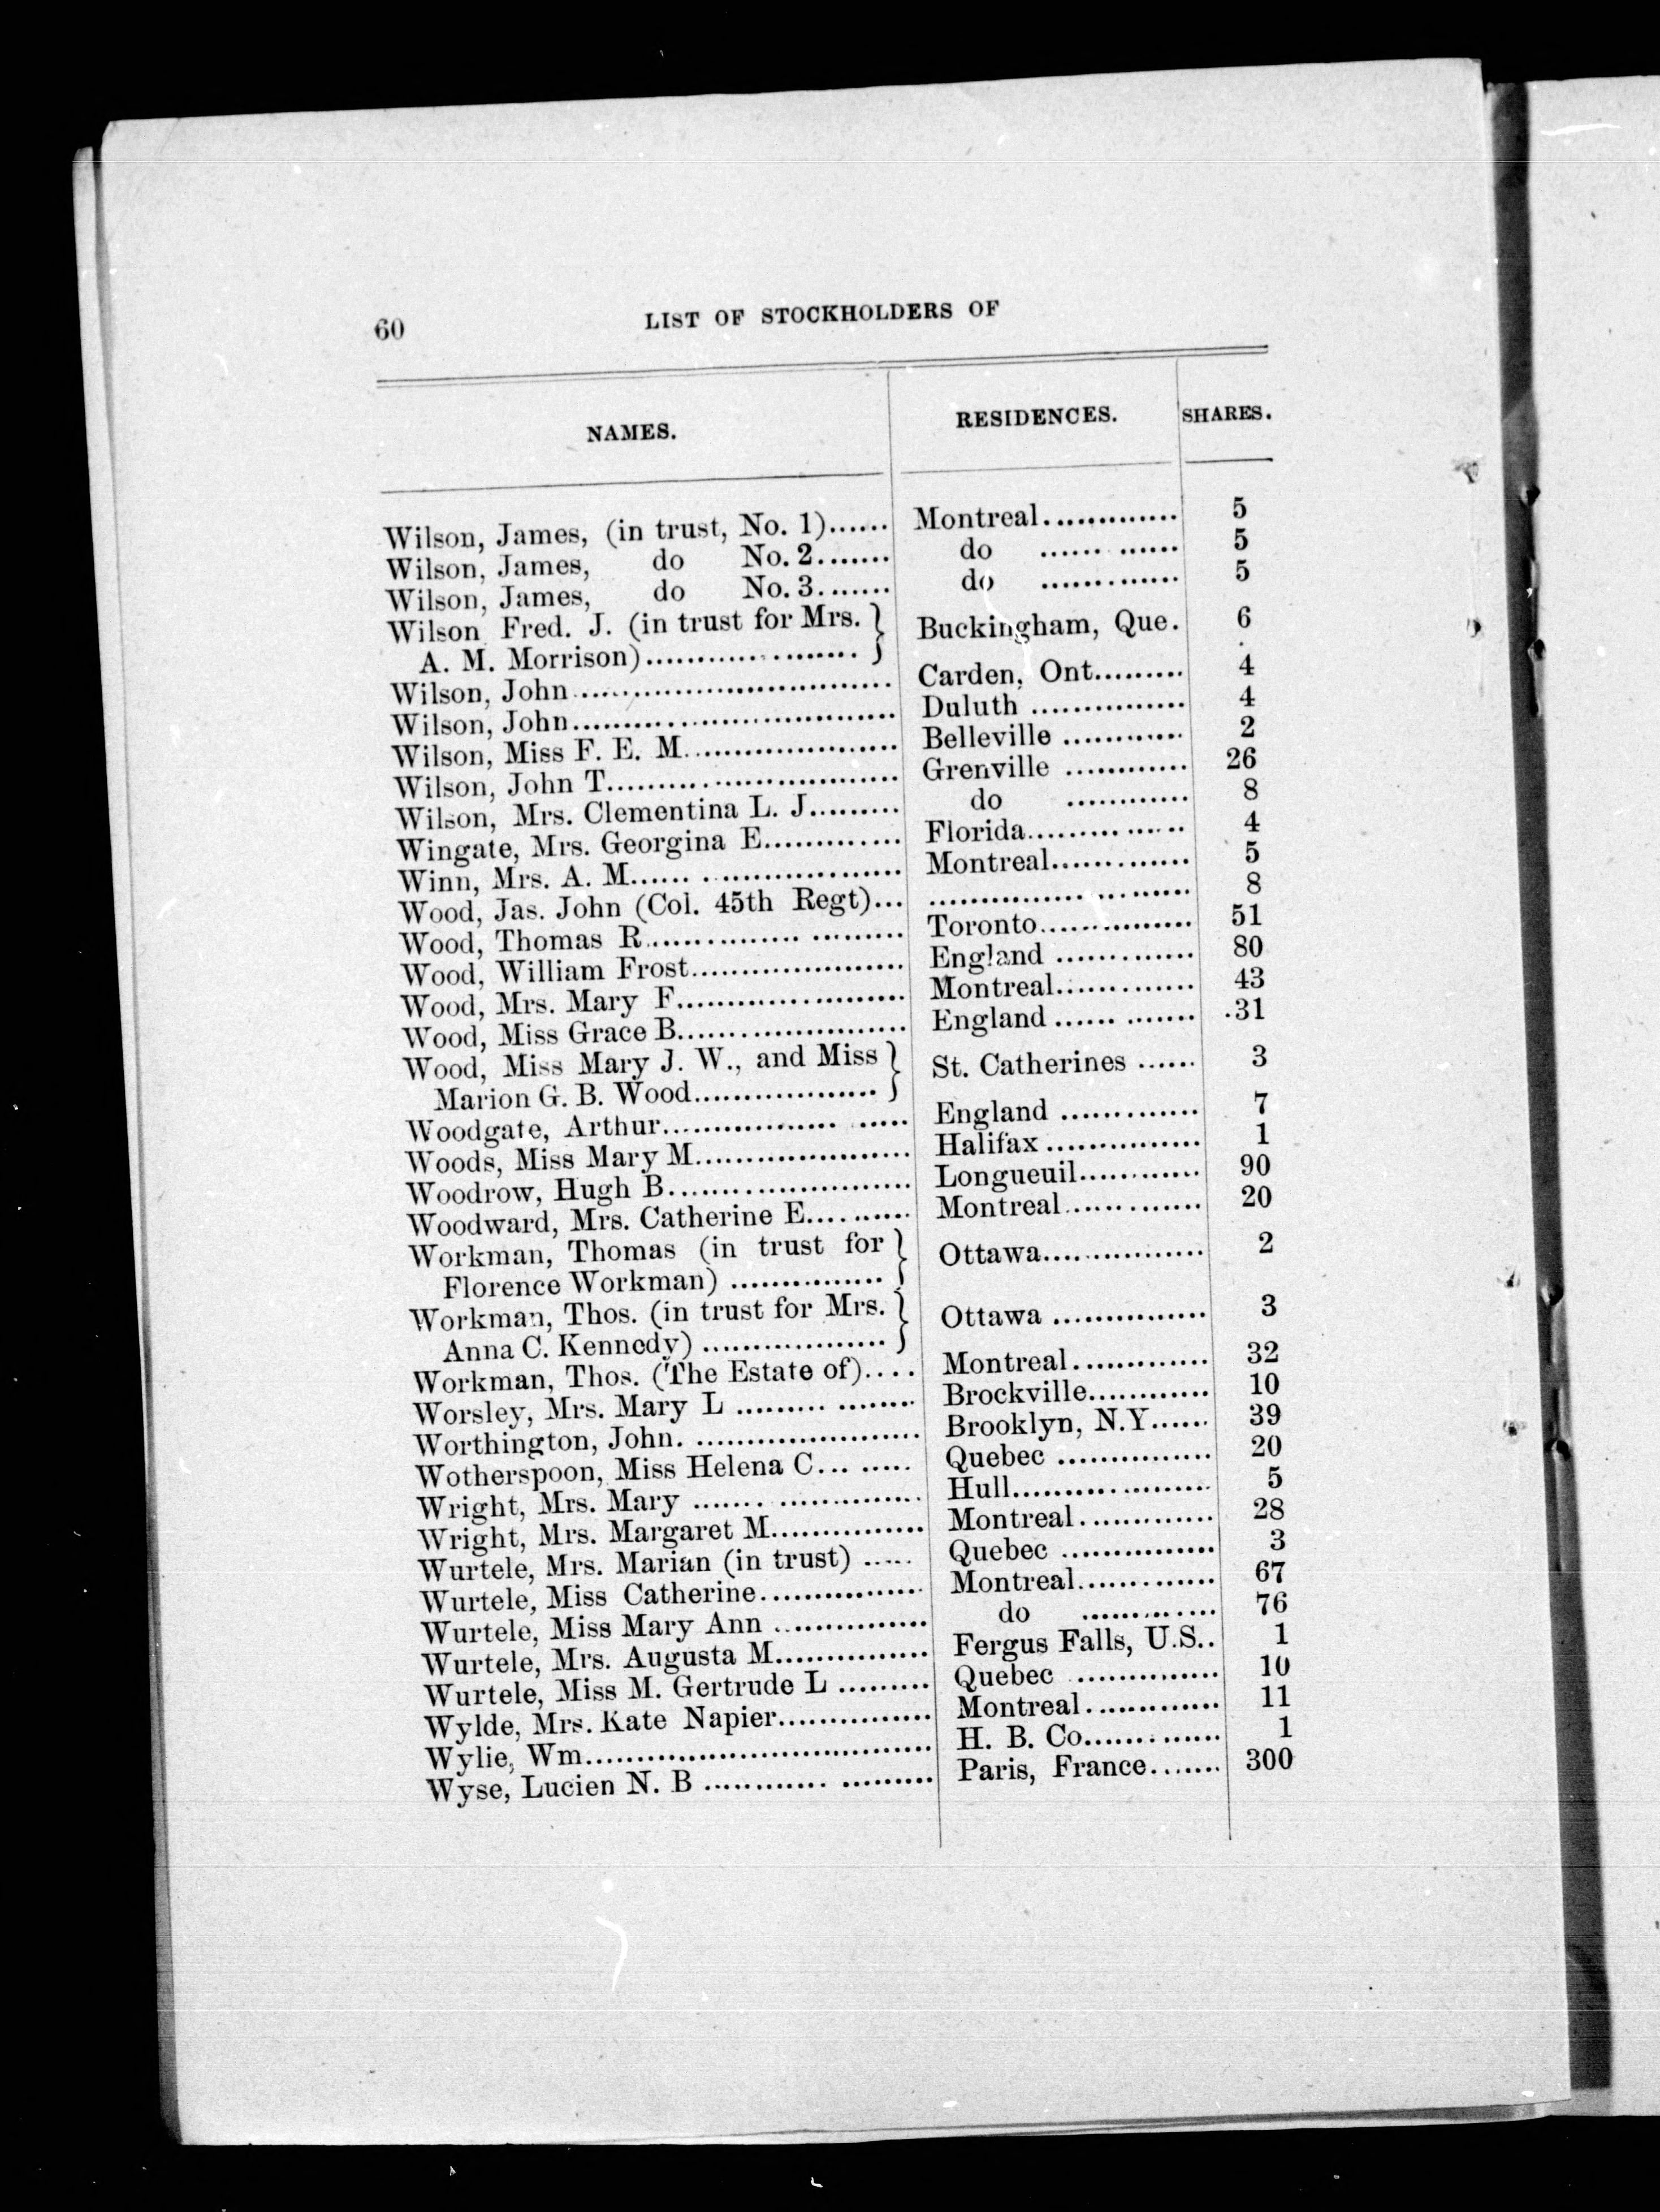 60 LIST OF STOCKHOLDERS OF
NAMES. RESIDENCES. SHARES.
Wilson, James, (in trust, No. 1)...... Montreal............. 5
Wilson, James, do No. 2....... do ............ 5
Wilson, James, do No. 3....... do ............. 5
Wilson Fred. J. (in trust for Mrs. } Buckingham, Que. 6
A. M. Morrison)....................
Wilson, John............................... Carden, Ont......... 4
Wilson, John............................... Duluth ............... 4
Wilson, Miss F. E. M..................... Belleville ............ 2
Wilson, John T............................ Grenville ............ 26
Wilson, Mrs. Clementina L. J......... do ............ 8
Wingate, Mrs. Georgina E............. Florida............... 4
Winn, Mrs. A. M......................... Montreal............. 5
Wood, Jas. John (Col. 45th Regt)... ......................... 8
Wood, Thomas R........................ Toronto............... 51
Wood, William Frost..................... England ............. 80
Wood, Mrs. Mary F...................... Montreal............. 43
Wood, Miss Grace B...................... England ............. 31
Wood, Miss Mary J. W., and Miss } St. Catherines ...... 3
Marion G. B. Wood..................
Woodgate, Arthur...................... England ............. 7
Woods, Miss Mary M..................... Halifax ............... 1
Woodrow, Hugh B........................ Longueuil............ 90
Woodward, Mrs. Catherine E.......... Montreal............. 20
Workman, Thomas (in trust for } Ottawa................ 2
Florence Workman) ...............
Workman, Thos. (in trust for Mrs. } Ottawa ............... 3
Anna C. Kennedy) ..................
Workman, Thos. (The Estate of).... Montreal............. 32
Worsley, Mrs. Mary L ................ Brockville............ 10
Worthington, John. ...................... Brooklyn, N.Y...... 39
Wotherspoon, Miss Helena C... ..... Quebec ............... 20
Wright, Mrs. Mary ..................... Hull................... 5
Wright, Mrs. Margaret M............... Montreal............. 28
Wurtele, Mrs. Marian (in trust) ..... Quebec ............... 3
Wurtele, Miss Catherine................ Montreal............. 67
Wurtele, Miss Mary Ann ............... do ............. 76
Wurtele, Mrs. Augusta M............... Fergus Falls, U.S.. 1
Wurtele, Miss M. Gertrude L ......... Quebec .............. 10
Wylde, Mrs. Kate Napier............... Montreal............. 11
Wylie, Wm.................................. H. B. Co............. 1
Wyse, Lucien N. B ..................... Paris, France....... 300